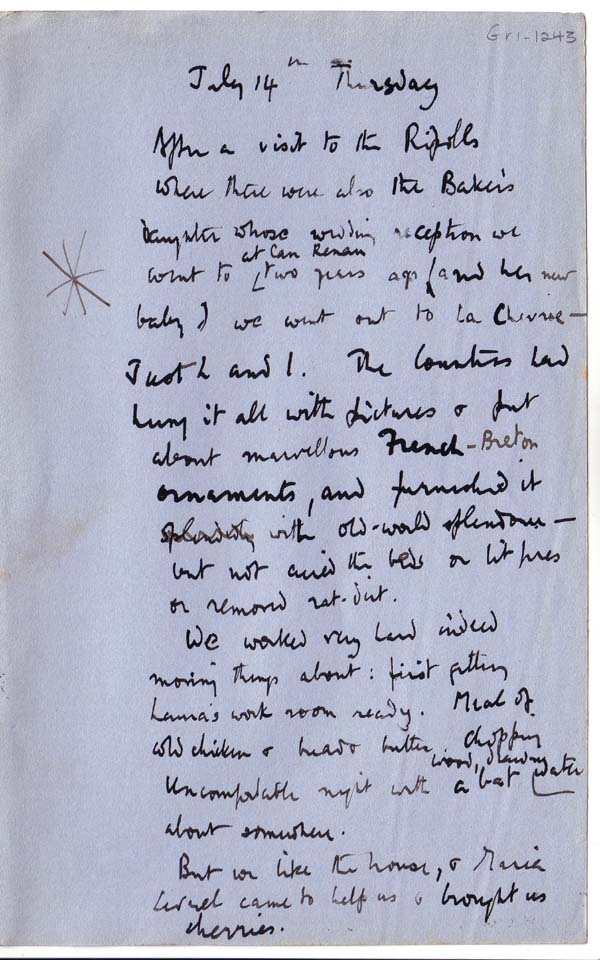 Gr1-1243
July 14th Thursday
After a visit to the Ripolls
where there were also the Baker's
daughter whose wedding reception we
at Can Renou
went to two years ago (and her new
baby) we went out to La Chevrie —
Just L and I. The Countess had
hung it all with pictures & put
about marvellous French-Breton
ornaments, and furnished it
splendidly with old-world splendour —
but not aired the beds or lit fires
or removed rat-dirt.
We worked very hard indeed
moving things about: first getting
Laura's work room ready. Meal of
cold chicken & bread & butter. Chopping
wood, drawing
Uncomfortable night with a bat water
about somewhere.
But we like the house, & Maria
came to help us & brought us
cherries.